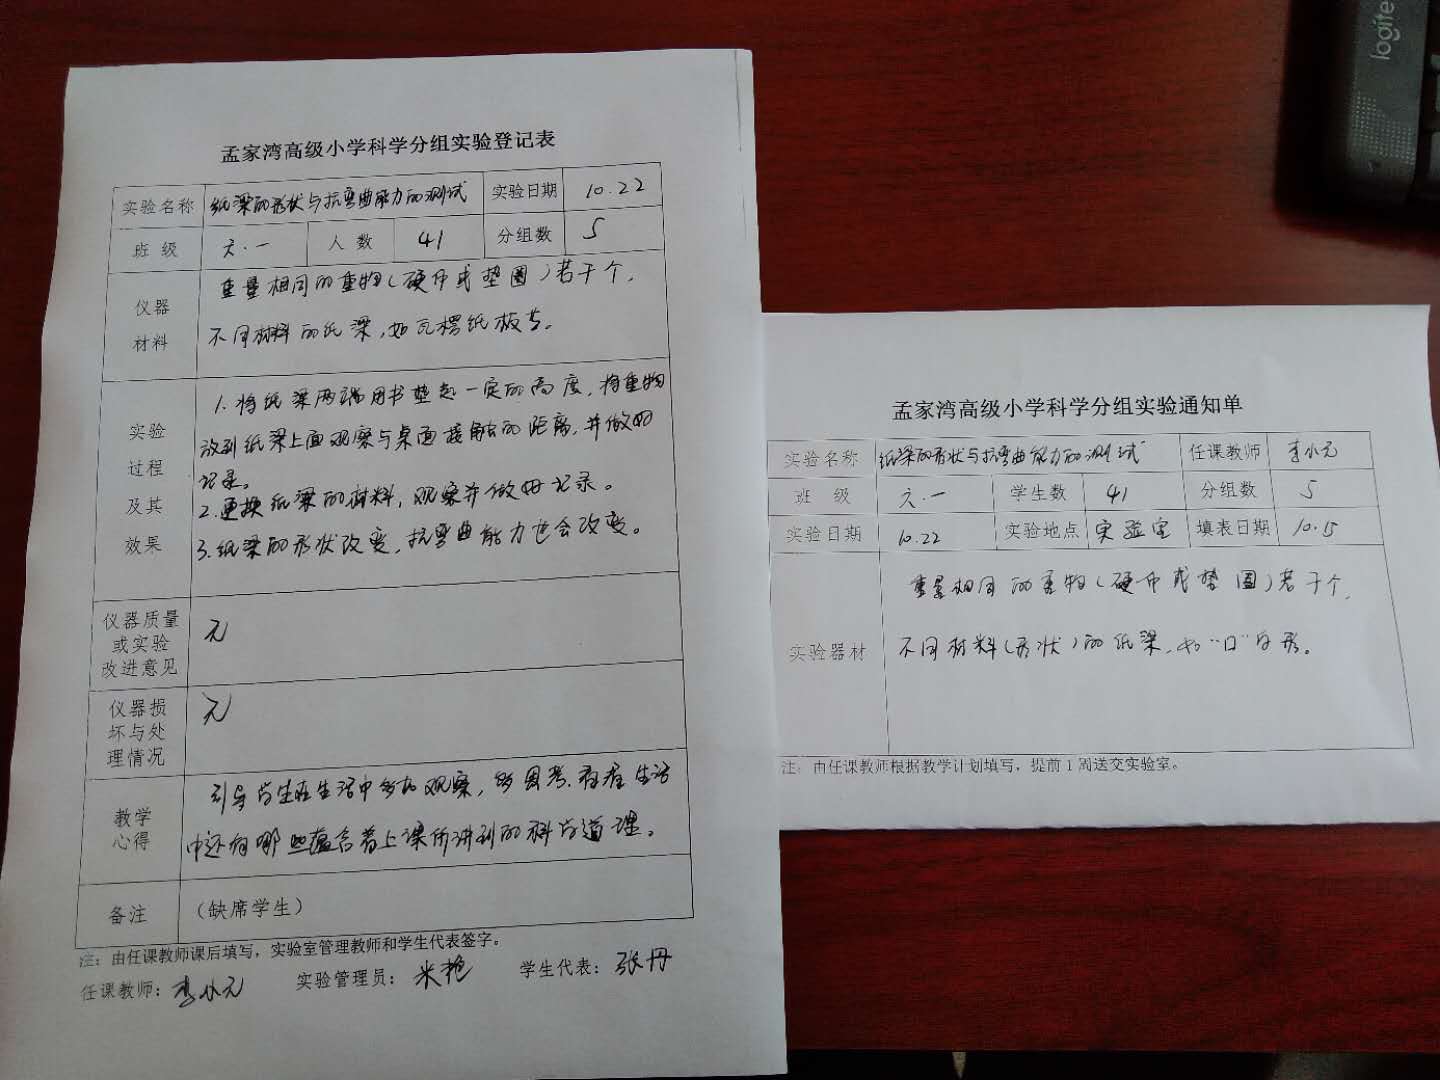 孟家湾高级小学科学分组实验登记表
实验名称 纸梁的形状与抗弯曲能力的测试 实验日期 10.22
班 级 六.一 人 数 41 分组数 5
仪器材料
重量相同的重物(硬币或垫圈)若干个,
不同材料的纸梁,如瓦楞纸板等。
实验过程及其效果
1.将纸梁两端用书垫起一定的高度,将重物
放到纸梁上面观察与桌面接触的距离,并做好
记录。
2.更换纸梁的材料,观察并做好记录。
3.纸梁的形状改变,抗弯曲能力也会改变。
仪器质量或实验改进意见
无
仪器损坏与处理情况
无
教学心得
引导学生在生活中多加观察,多思考,看看生活
中还有哪些蕴含着上课所讲到的科学道理。
备注 (缺席学生)
注:由任课教师课后填写,实验室管理教师和学生代表签字。
任课教师:李小元 实验管理员:米艳 学生代表:张丹
孟家湾高级小学科学分组实验通知单
实验名称 纸梁的形状与抗弯曲能力的测试 任课教师 李小元
班 级 六.一 学生数 41 分组数 5
实验日期 10.22 实验地点 实验室 填表日期 10.15
实验器材
重量相同的重物(硬币或垫圈)若干个,
不同材料(形状)的纸梁,如“口”字形。
注:由任课教师根据教学计划填写,提前1周送交实验室。
logite